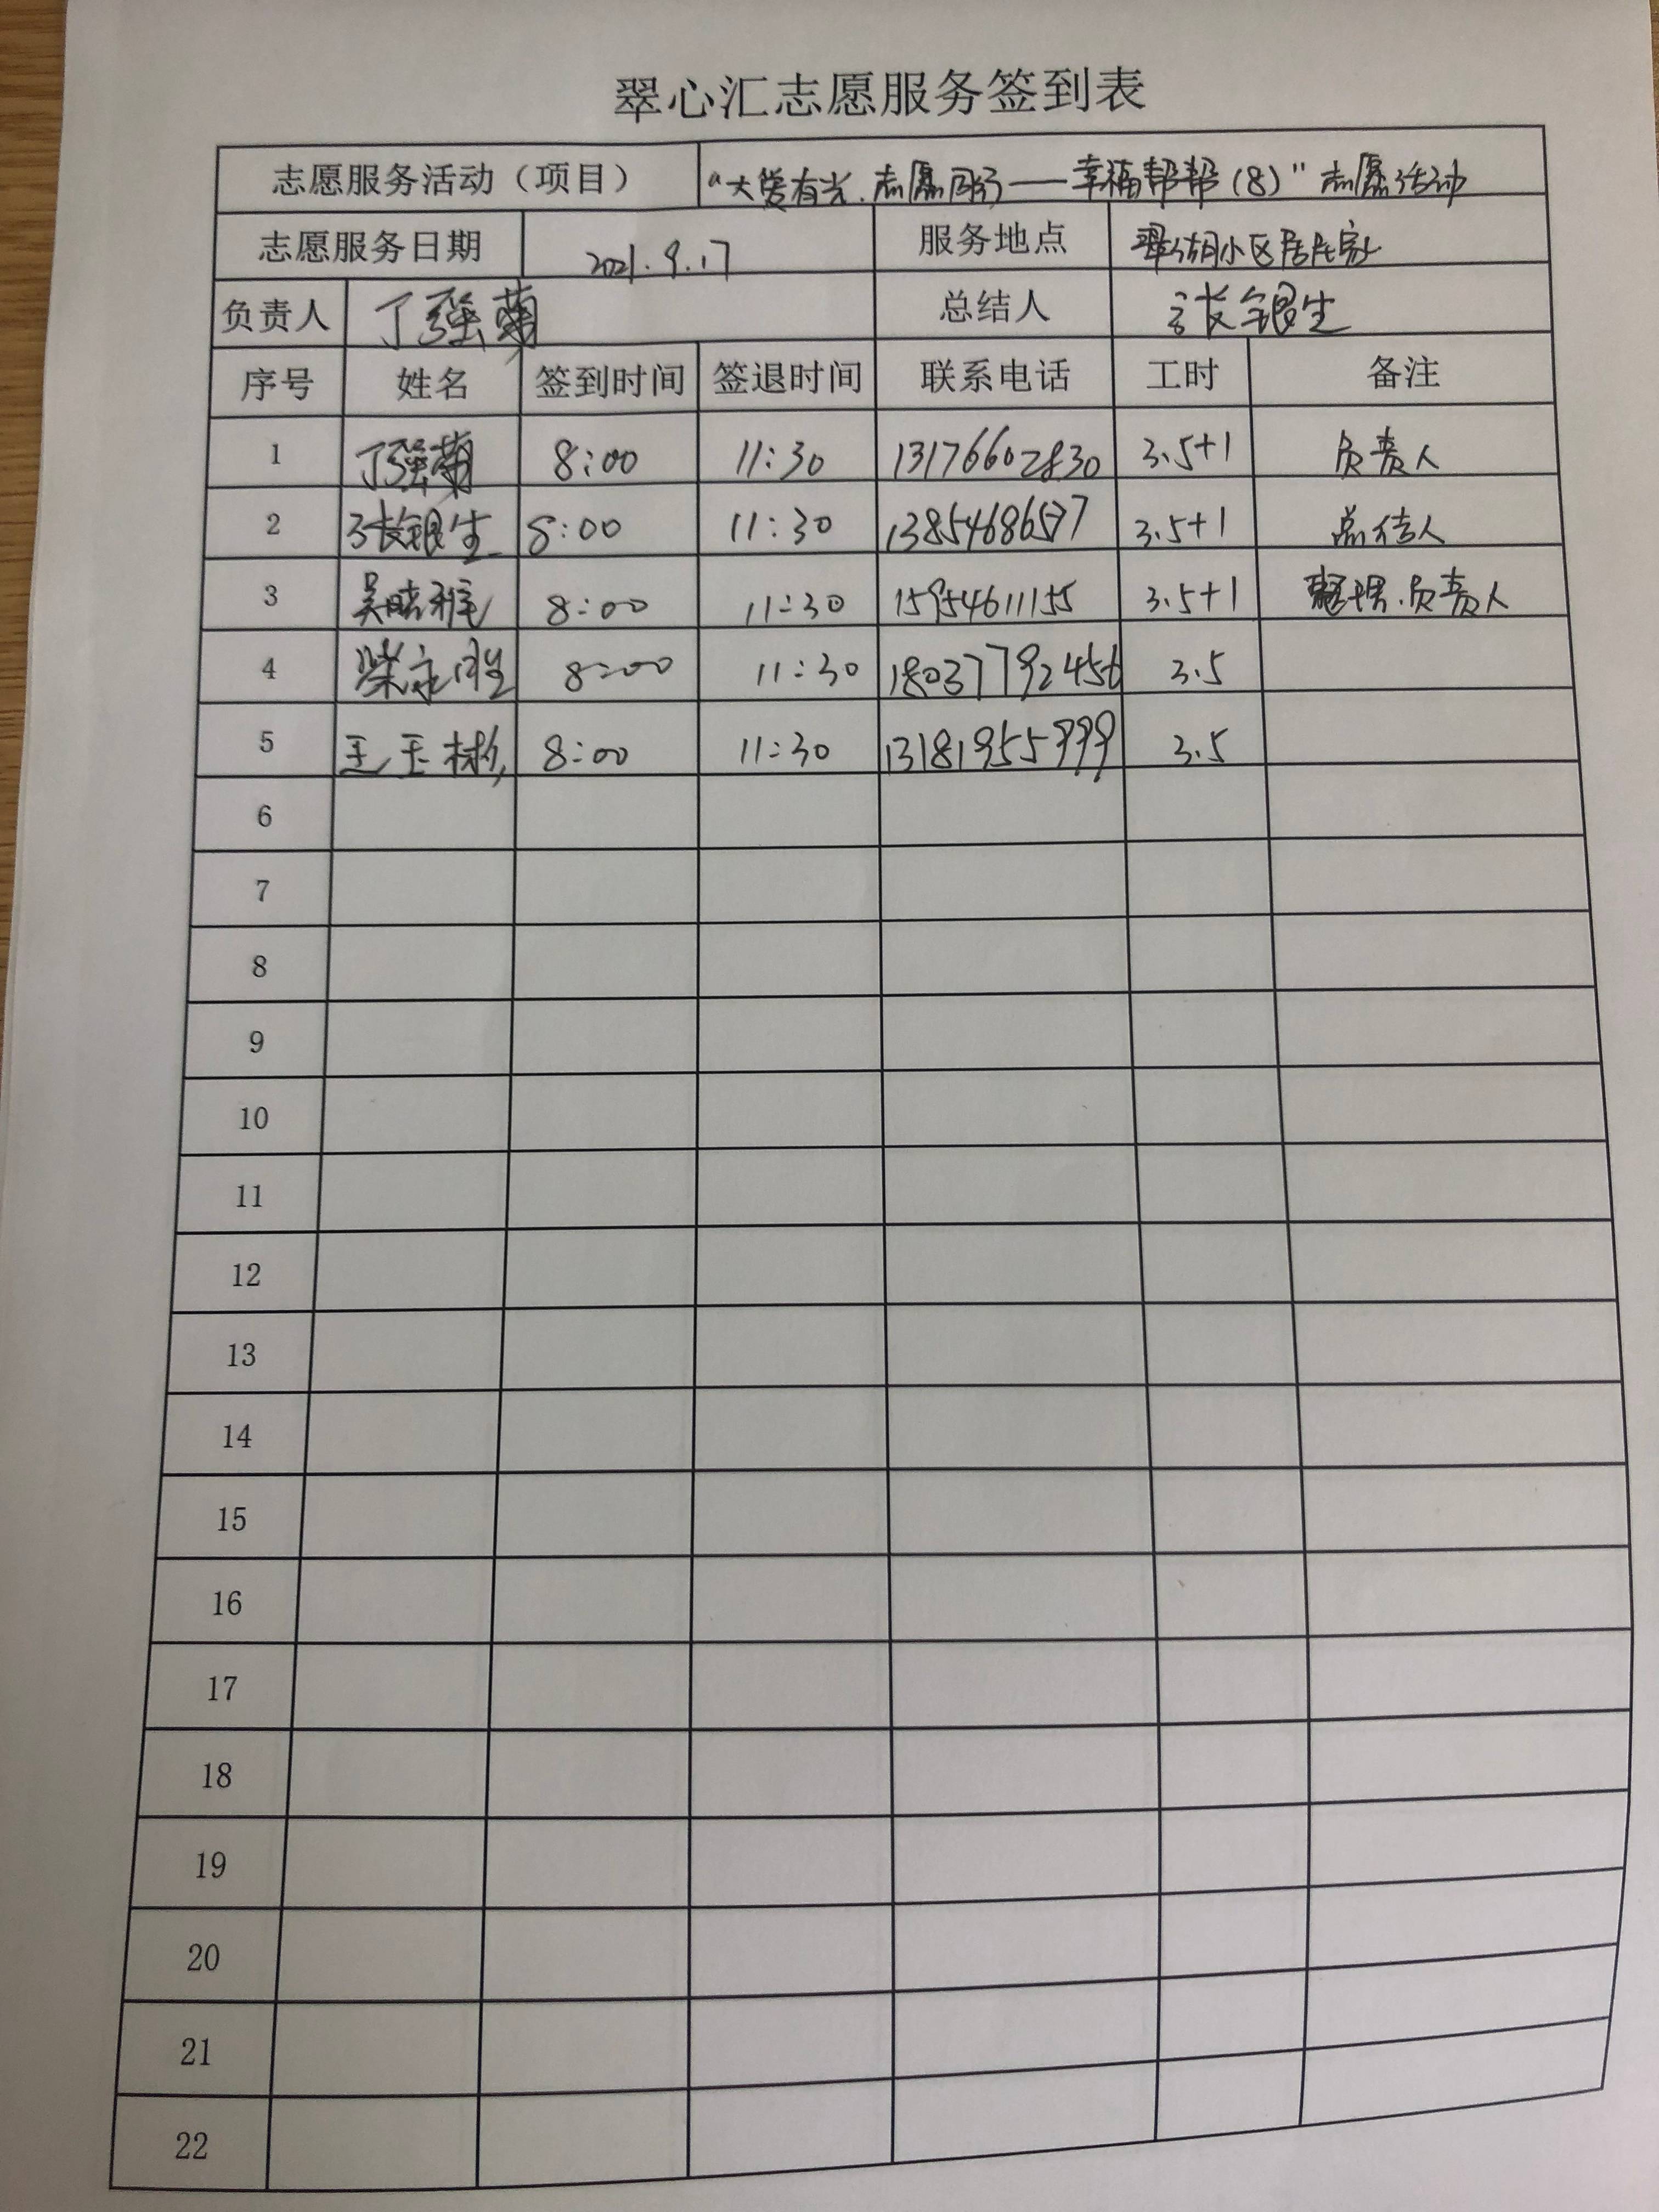 翠心汇志愿服务签到表
志愿服务活动（项目） “大爱有光.志愿同行——幸福帮帮（8）”志愿活动
志愿服务日期 2021.9.17 服务地点 翠湖小区居民家
负责人 丁强菊 总结人 张银生
序号 姓名 签到时间 签退时间 联系电话 工时 备注
1 丁强菊 8:00 11:30 13176602830 3.5+1 负责人
2 张银生 8:00 11:30 13854686577 3.5+1 总结人
3 吴晓雅 8:00 11:30 15954611155 3.5+1 整理.负责人
4 柴永胜 8:00 11:30 18037792456 3.5
5 王玉彬 8:00 11:30 13181955999 3.5
6
7
8
9
10
11
12
13
14
15
16
17
18
19
20
21
22